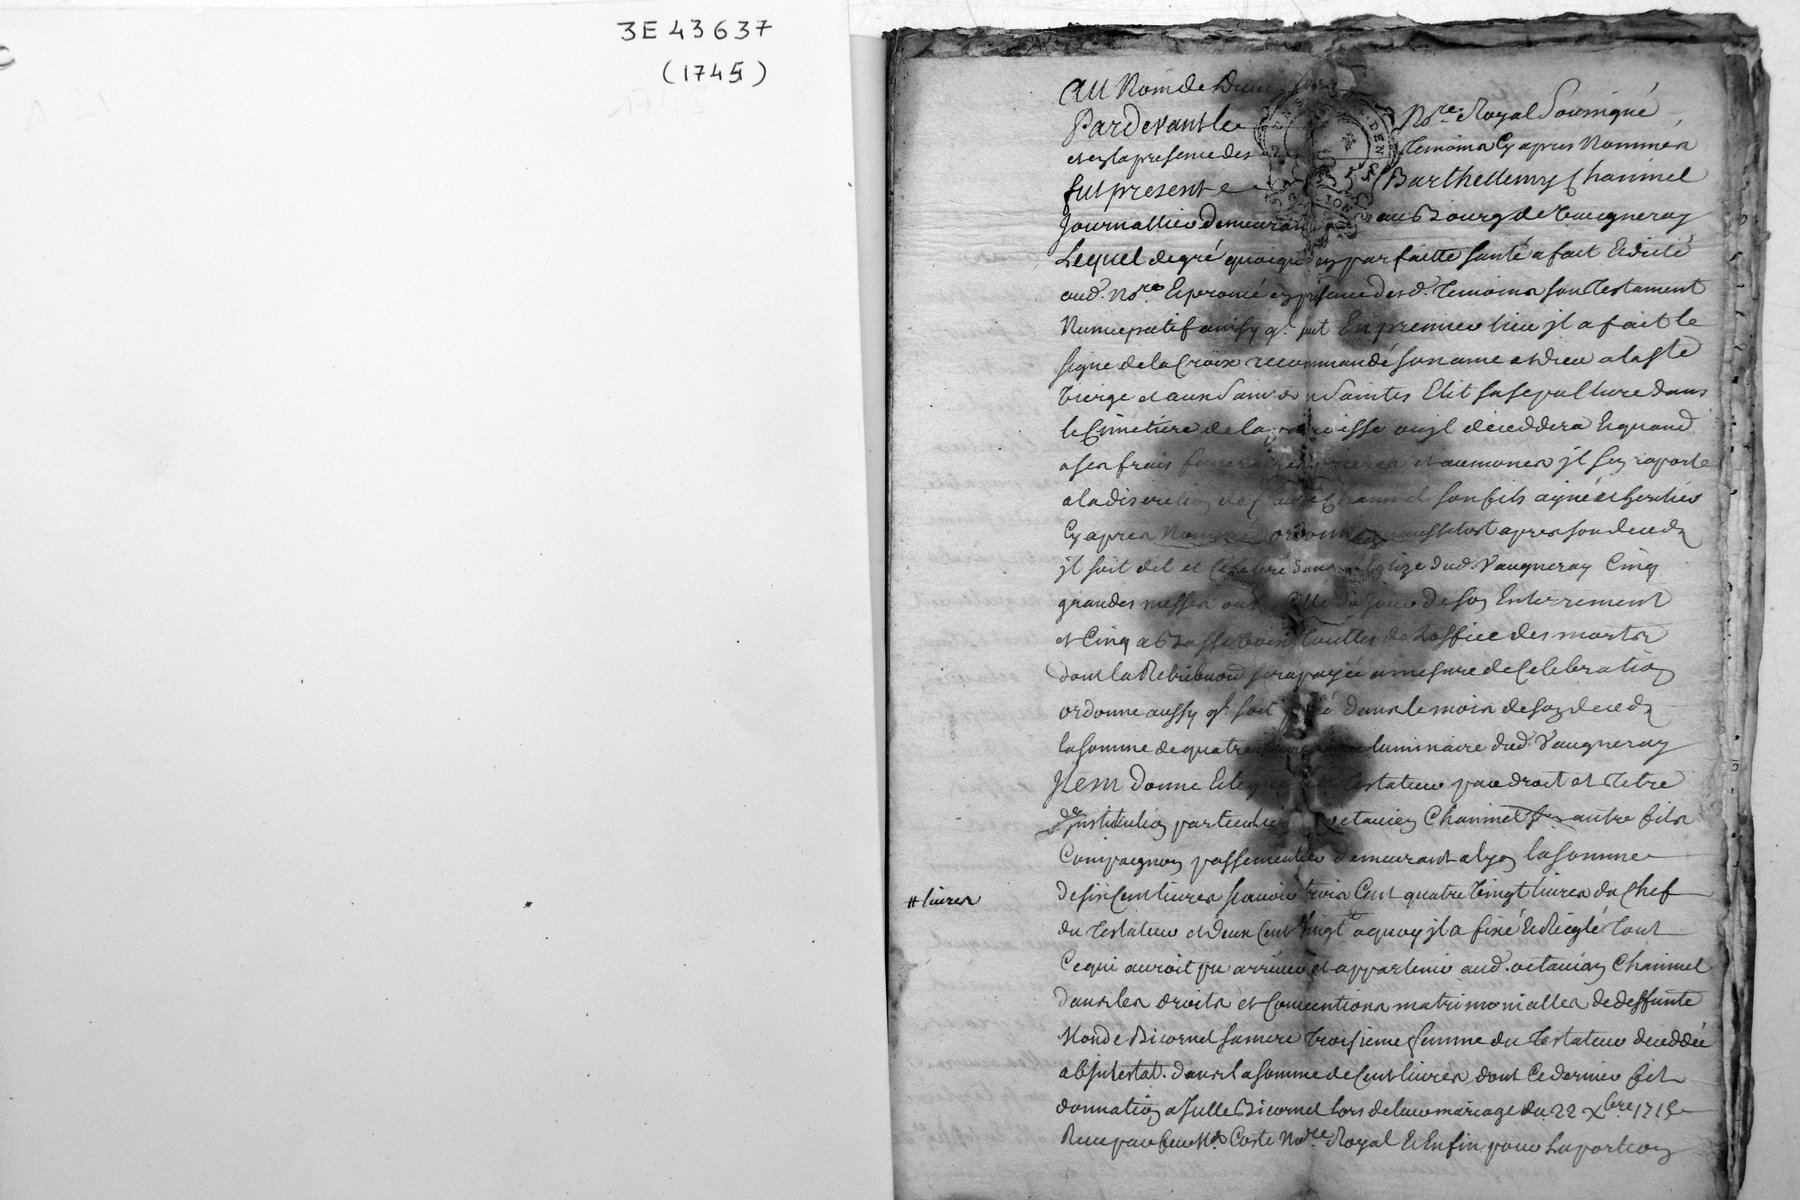 3E 43637
(1745)
Au Nom de Dieu
Pardevant le Nore Royal Soussigné
et en la presence des Temoins Cy apres Nommés
fut present Barthellemy Chanimel
Journallier Demeurant au Bourg de Vaugneray
Lequel de gré quoique en parfaitte santé a fait Et dicté
aud. Nore Et prononcé en presence desd. Temoins son Testament
Nuncupatif ainsy q. suit En premier lieu jl a fait le
signe de la Croix recommandé son ame a Dieu a la Ste
Vierge et aux Saints et Saintes Elit sa sepulture dans
le Cimetiere de la parroisse ou jl deceddera Et quand
a ses frais funeraires prieres et aumones jl sen raporte
a la discretion de Claude Chanimel son fils ayné et heritier
Cy apres Nommé ordonne aussitost apres son deceds
jl soit dit et Celebré dans Eglize dud. Vaugneray Cinq
grandes messes celle du jour de son Enterrement
et Cinq a Basse voix touttes de Loffice des morts
dont la Retribution sera payée a mesure de Celebration
ordonne aussy q. soit payé dans le mois de son deceds
la somme de quatre luminaire dud. Vaugneray
Jtem Donne Et legue Testateur par droit et Titre
d'institution particuliere octavien Chanimel son autre fils
Compagnon passementier demeurant a lyon la somme
de six Cent livres scavoir trois Cent quatre Vingt livres du Chef
# livres
du Testateur et Deux Cent Vingt # a quoy jl a fixé Et Reiglé Tout
Ce qui auroit pu arriver et appartenir aud. octavien Chanimel
dans les droits et Conventions matrimonialles de deffunte
Bicornet sa mere troisieme femme du Testateur deceddée
abjntestat. dans la somme de Cent livres dont Ce dernier fit
donnation a Bicornet lors de leur mariage du 22 Xbre 1715
Receu par Me Coste Nore Royal Et Enfin pour la portion